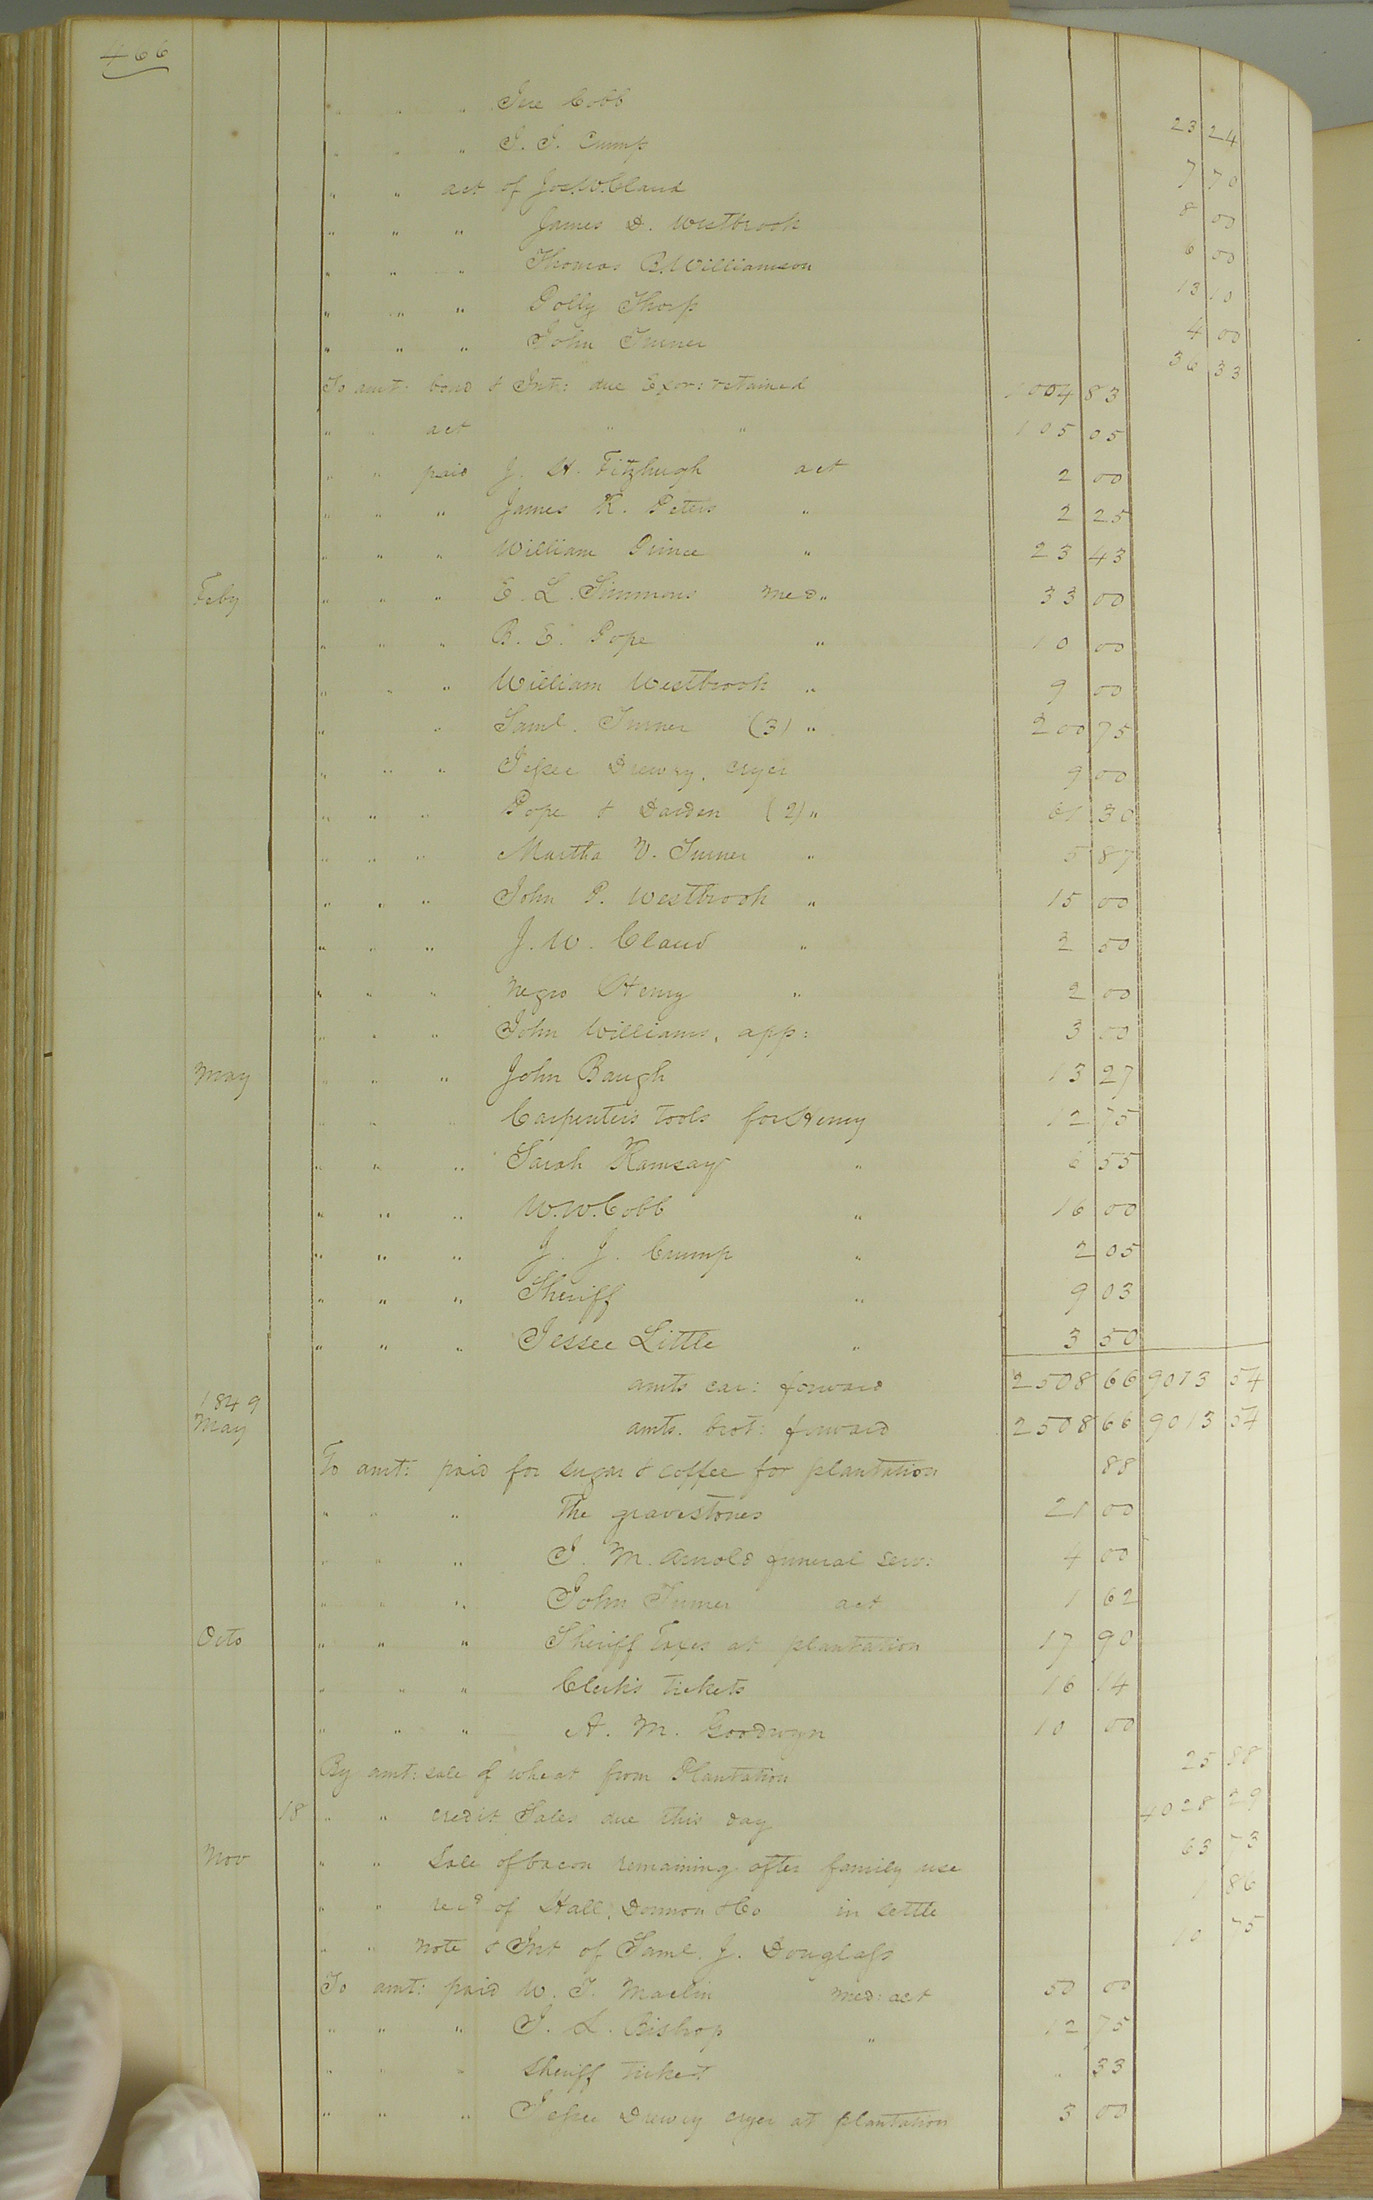 466
" " " Jere Cobb 23 24
" " " J. J. Crump 7 70
" " act of Jos. W. Claud 8 00
" " " James D. Westbrook 6 50
" " " Thomas B. Williamson 13 10
" " " Polly Thorp 4 00
" " " John Turner 36 33
To amt: bond & Int: due Exor: retained 1004 83
" " act " " 105 05
" " paid J. H. Fitzhugh act 2 00
" " " James K. Peters " 2 25
" " " William Prince " 23 43
Feby " " " E. L. Simmons med " 33 00
" " " B. E. Pope " 10 00
" " " William Westbrook " 9 00
" " Saml. Turner (3) " 200 75
" " " Jessee Drewry, cryer 9 00
" " " Pope & Darden (2) " 61 30
" " " Martha V. Turner " 5 87
" " " John P. Westbrook " 15 00
" " " J. W. Claud " 2 50
" " " negro Henry " 2 00
" " " John Williams, app: 3 00
May " " " John Baugh 13 27
" " " Carpenters tools for Henry 12 75
" " " Sarah Ramsay " 6 55
" " " W. W. Cobb " 16 00
" " " J. J. Crump " 2 05
" " " Sheriff " 9 03
" " " Jessee Little " 3 50
amts car: forward 2508 66 9013 54
1849
May amts. brot: forward 2508 66 9013 54
To amt: paid for sugar & coffee for plantation 88
" " " The gravestones 21 00
" " " J. M. Arnold funeral serv: 4 00
" " " John Turner act 1 62
Octo " " " Sheriff Taxes at plantation 17 90
" " " Clerk's tickets 16 14
" " " A. M. Goodwyn 10 00
By amt: sale of wheat from Plantation 25 88
18 " " credit Sales due this day 4028 29
Nov " " Sale of bacon remaining after family use 63 73
" " recd of Hall, Donnon & Co in settle 1 86
" " note & Int of Saml. J. Douglass 10 75
To amt: paid W. T. Maclin med: act 50 00
" " " J. L. Bishop " 12 75
" " " Sheriff ticket " 33
" " " Jessee Drewry cryer at plantation 3 00